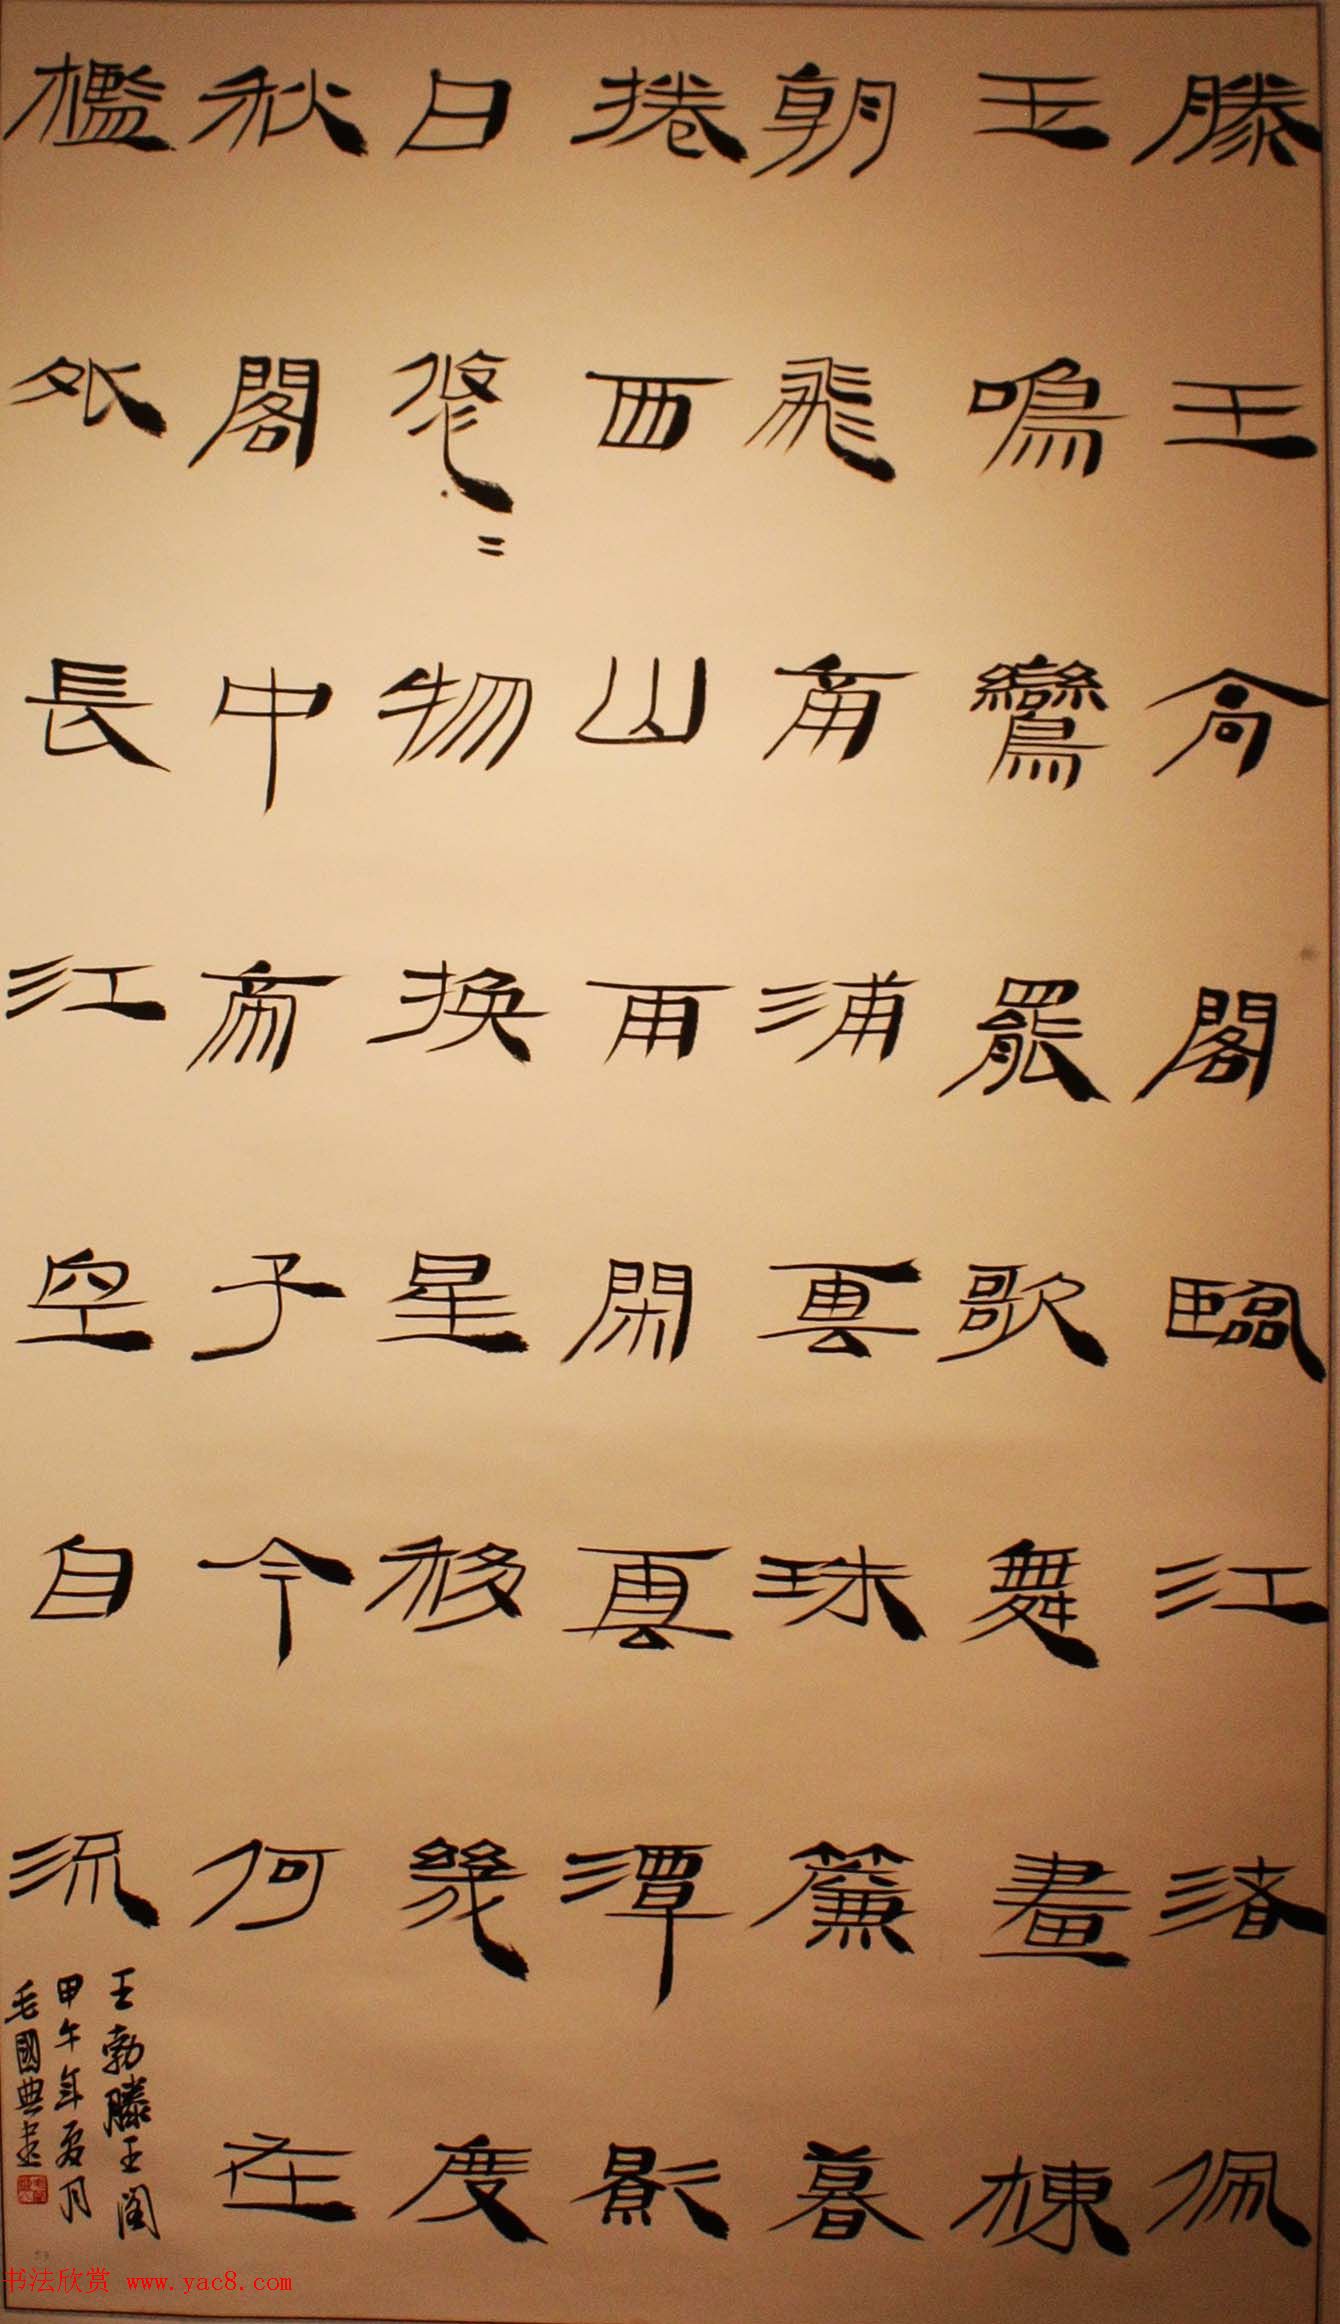 滕王高閣臨江渚佩
玉鳴鸞罷歌舞畫棟
朝飛南浦雲珠簾暮
捲西山雨閑雲潭影
日悠〻物換星移幾度
秋閣中帝子今何在
檻外長江空自流
王勃滕王閣
甲午年夏月
毛國典書
书法欣赏 www.yac8.com